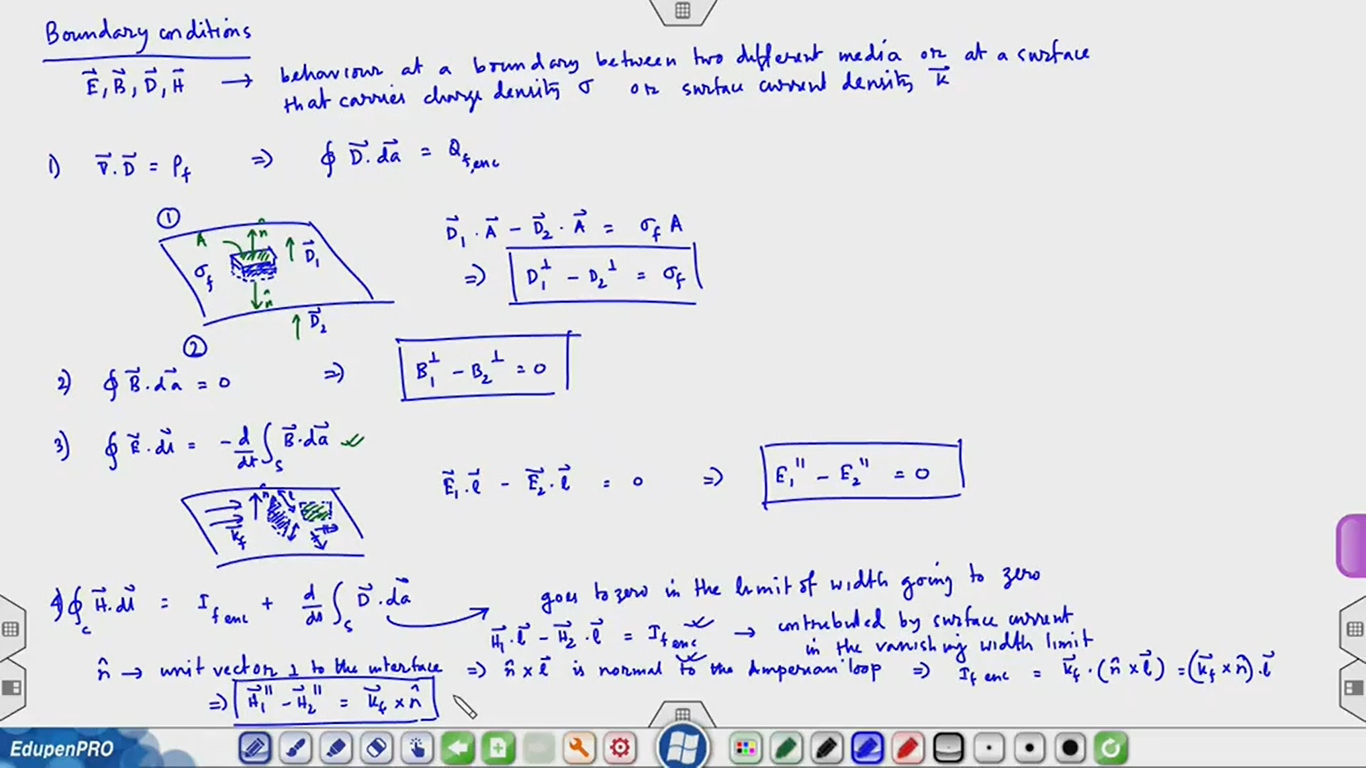 Boundary conditions
E⃗, B⃗, D⃗, H⃗ → behaviour at a boundary between two different media or at a surface
that carries charge density σ or surface current density K⃗
1) ∇⃗·D⃗ = ρ_f ⇒ ∮ D⃗·da⃗ = Q_f,enc
①
A n̂ D⃗₁
σ_f
n̂
D⃗₂
②
D⃗₁·A⃗ − D⃗₂·A⃗ = σ_f A
⇒ D₁^⊥ − D₂^⊥ = σ_f
2) ∮ B⃗·da⃗ = 0 ⇒ B₁^⊥ − B₂^⊥ = 0
3) ∮ E⃗·dl⃗ = −d/dt ∫_S B⃗·da⃗ ✓
n̂ l
K⃗_f
E⃗₁·l⃗ − E⃗₂·l⃗ = 0 ⇒ E₁^∥ − E₂^∥ = 0
4) ∮_c H⃗·dl⃗ = I_f enc + d/dt ∫_S D⃗·da⃗ → goes to zero in the limit of width going to zero
H⃗₁·l⃗ − H⃗₂·l⃗ = I_f enc → contributed by surface current
in the vanishing width limit
n̂ → unit vector ⊥ to the interface ⇒ n̂ × l⃗ is normal to the Amperian loop ⇒ I_f enc = K⃗_f·(n̂ × l⃗) = (K⃗_f × n̂)·l⃗
⇒ H⃗₁^∥ − H⃗₂^∥ = K⃗_f × n̂
EdupenPRO